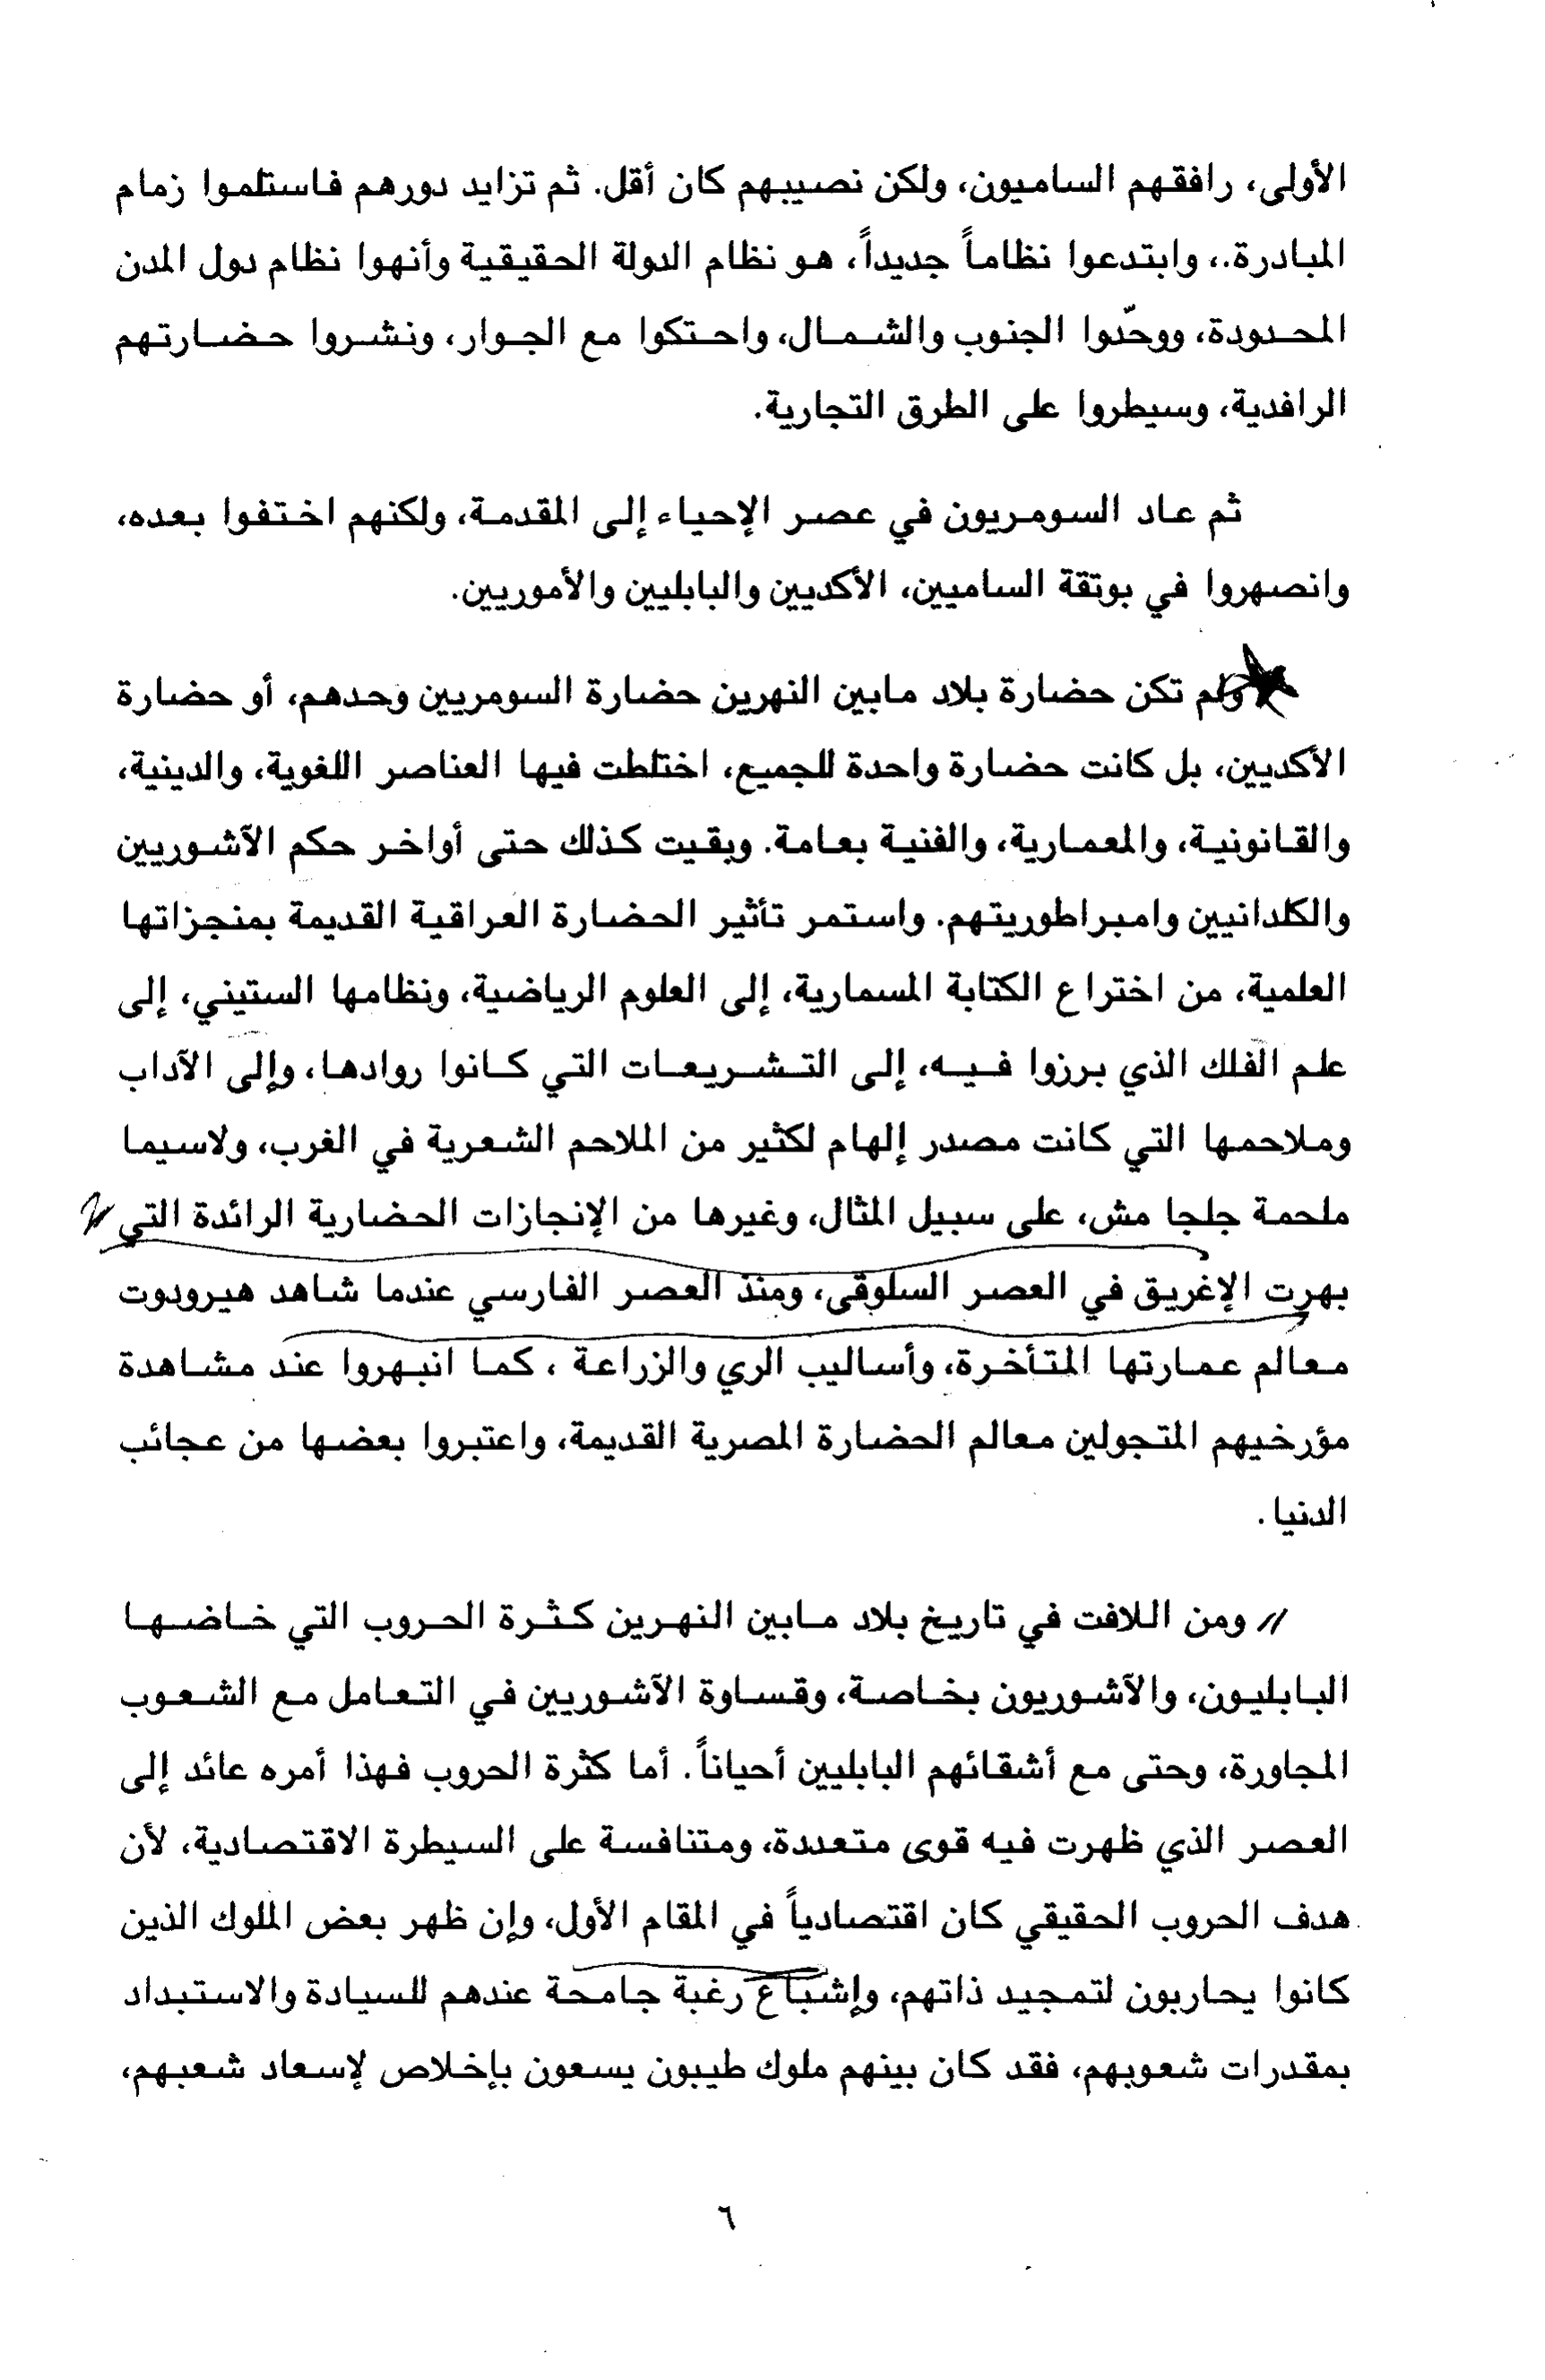 الأولى، رافقهم الساميون، ولكن نصيبهم كان أقل. ثم تزايد دورهم فاستلموا زمام
المبادرة.، وابتدعوا نظاماً جديداً، هو نظام الدولة الحقيقية وأنهوا نظام دول المدن
المحدودة، ووحّدوا الجنوب والشمال، واحتكوا مع الجوار، ونشروا حضارتهم
الرافدية، وسيطروا على الطرق التجارية.
ثم عاد السومريون في عصر الإحياء إلى المقدمة، ولكنهم اختفوا بعده،
وانصهروا في بوتقة الساميين، الأكديين والبابليين والأموريين.
ولم تكن حضارة بلاد مابين النهرين حضارة السومريين وحدهم، أو حضارة
الأكديين، بل كانت حضارة واحدة للجميع، اختلطت فيها العناصر اللغوية، والدينية،
والقانونية، والمعمارية، والفنية بعامة. وبقيت كذلك حتى أواخر حكم الآشوريين
والكلدانيين وامبراطوريتهم. واستمر تأثير الحضارة العراقية القديمة بمنجزاتها
العلمية، من اختراع الكتابة المسمارية، إلى العلوم الرياضية، ونظامها الستيني، إلى
علم الفلك الذي برزوا فيه، إلى التشريعات التي كانوا روادها، وإلى الآداب
وملاحمها التي كانت مصدر إلهام لكثير من الملاحم الشعرية في الغرب، ولاسيما
ملحمة جلجا مش، على سبيل المثال، وغيرها من الإنجازات الحضارية الرائدة التي
بهرت الإغريق في العصر السلوقي، ومنذ العصر الفارسي عندما شاهد هيرودوت
معالم عمارتها المتأخرة، وأساليب الري والزراعة ، كما انبهروا عند مشاهدة
مؤرخيهم المتجولين معالم الحضارة المصرية القديمة، واعتبروا بعضها من عجائب
الدنيا .
// ومن اللافت في تاريخ بلاد مابين النهرين كثرة الحروب التي خاضها
البابليون، والآشوريون بخاصة، وقساوة الآشوريين في التعامل مع الشعوب
المجاورة، وحتى مع أشقائهم البابليين أحياناً. أما كثرة الحروب فهذا أمره عائد إلى
العصر الذي ظهرت فيه قوى متعددة، ومتنافسة على السيطرة الاقتصادية، لأن
هدف الحروب الحقيقي كان اقتصادياً في المقام الأول، وإن ظهر بعض الملوك الذين
كانوا يحاربون لتمجيد ذاتهم، وإشباع رغبة جامحة عندهم للسيادة والاستبداد
بمقدرات شعوبهم، فقد كان بينهم ملوك طيبون يسعون بإخلاص لإسعاد شعبهم،
٦